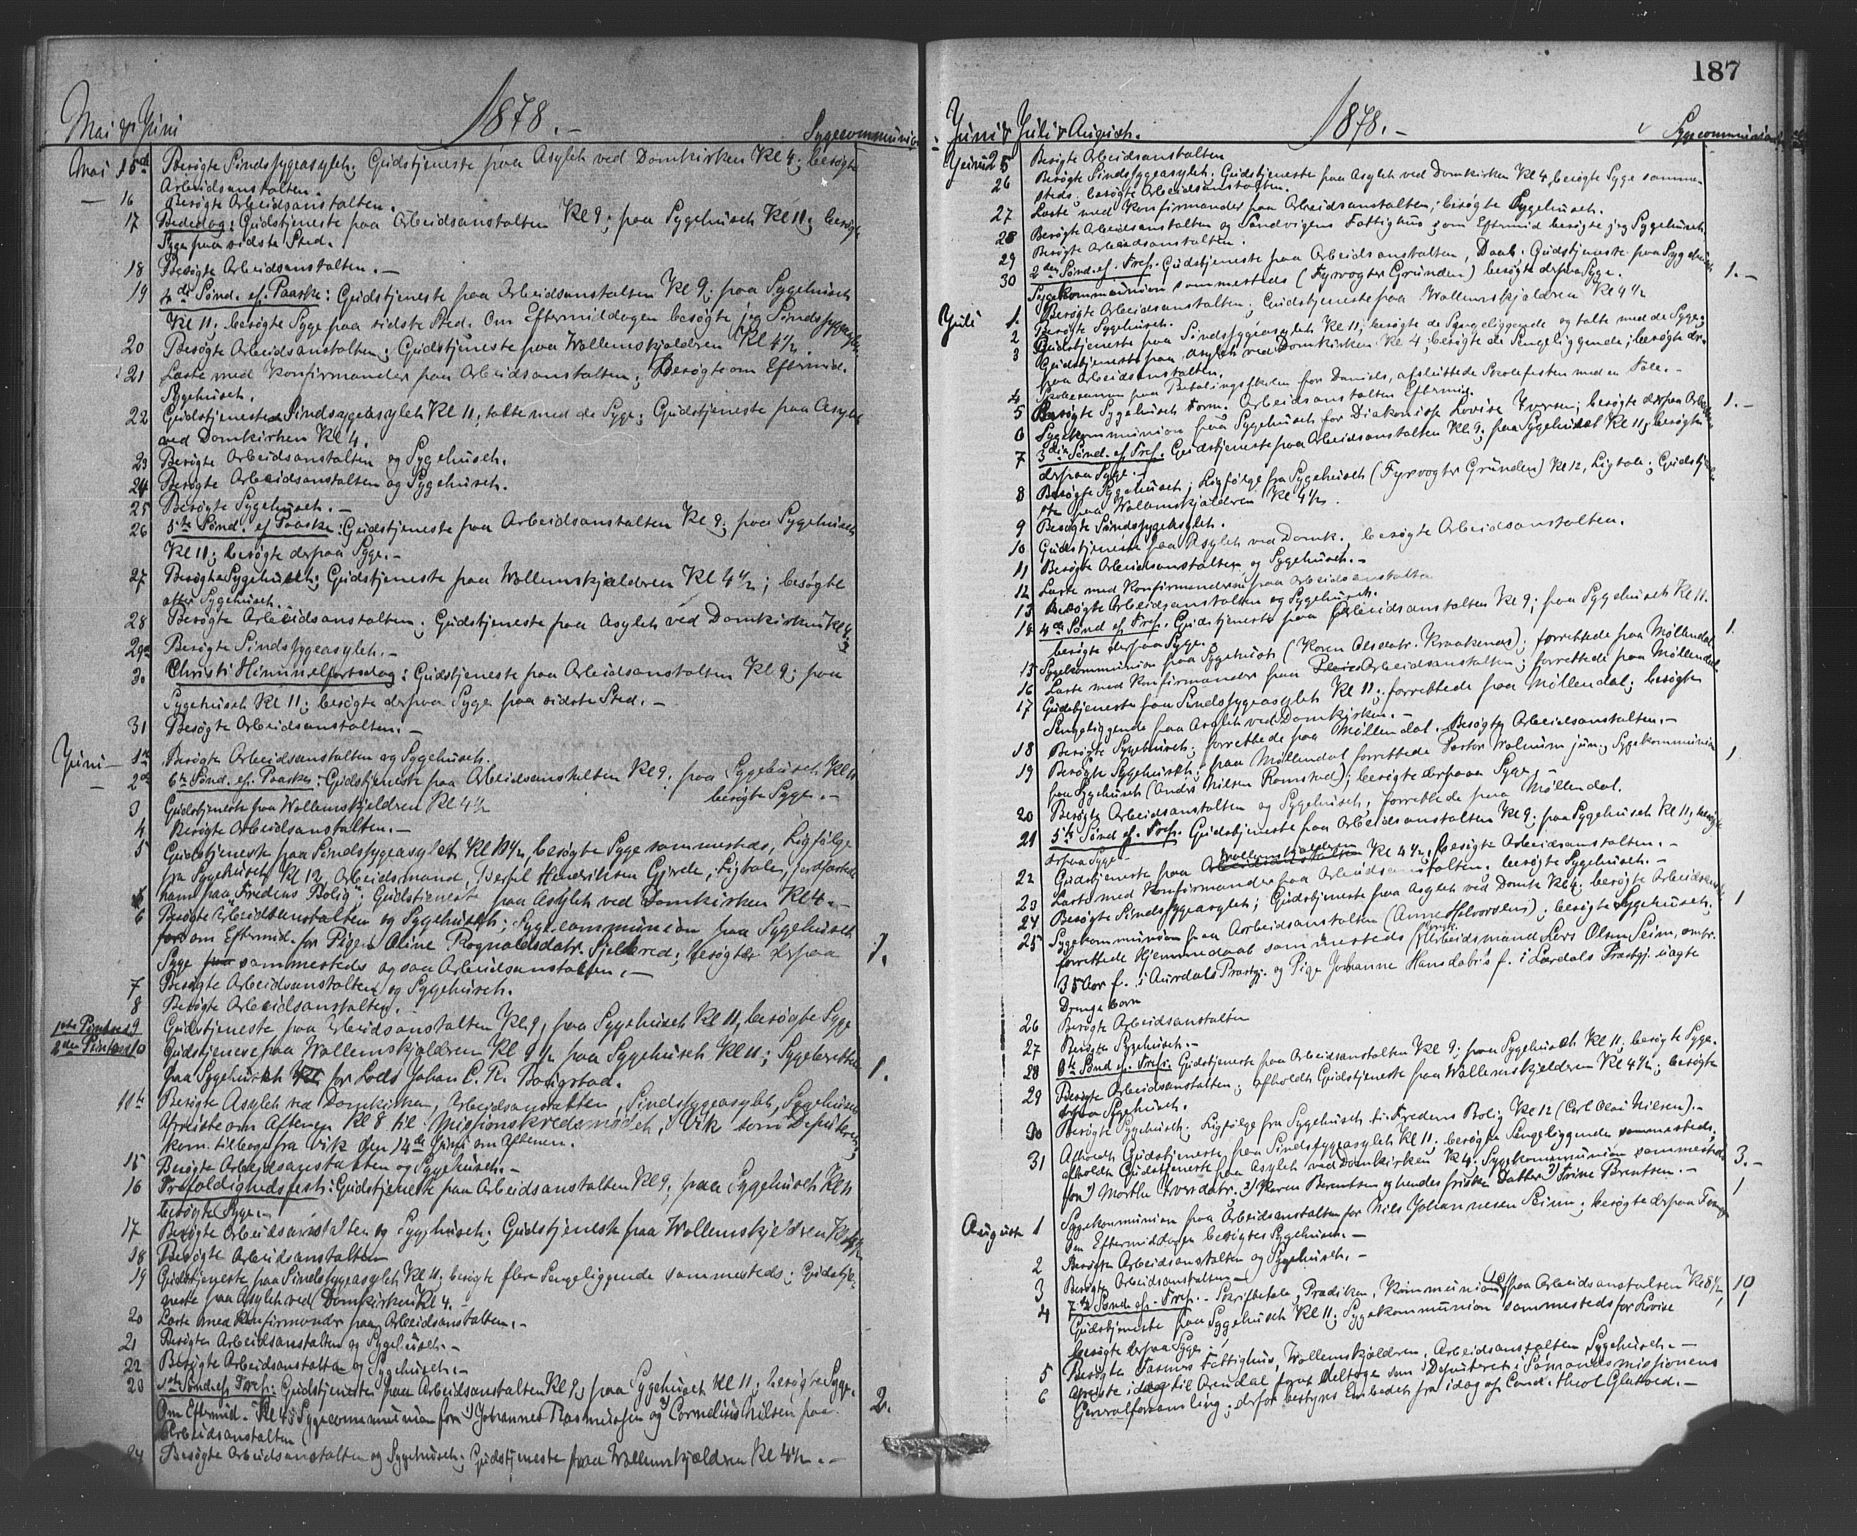 Mai & Juni
1878.-
Sygecommunion
Mai 15de Besøgte Sindssygeasylet; Gudstjeneste paa Asylet ved Domkirken Kl 4; besøgte
Arbeidsanstalten.
— 16 Besøgte Arbeidsanstalten.
17 Bededag: Gudstjeneste paa Arbeidsanstalten Kl 9; paa Sygehuset Kl 11; besøgte
Syge paa sidste Sted.
18 Besøgte Arbeidsanstalten. —
19 4de Sønd. ef. Paaske: Gudstjeneste paa Arbeidsanstalten Kl 9; paa Sygehuset
Kl 11; besøgte Syge paa sidste Sted. Om Eftermiddagen besøgte jeg Sindssygeasylet
20 Besøgte Arbeidsanstalten; Gudstjeneste paa Wollemskjældren Kl 4½
21 Læste med Konfirmander paa Arbeidsanstalten; Besøgte om Eftermid.
Sygehuset.
22 Gudstjeneste Sindssygeasylet Kl 11; talte med de Syge; Gudstjeneste paa Asylet
ved Domkirken Kl 4.
23 Besøgte Arbeidsanstalten og Sygehuset.
24 Besøgte Arbeidsanstalten og Sygehuset.
25 Besøgte Sygehuset. —
26 5te Sønd. ef Paaske: Gudstjeneste paa Arbeidsanstalten Kl 9; paa Sygehuset
Kl 11; besøgte derpaa Syge. —
27 Besøgte Sygehuset; Gudstjeneste paa Wollemskjældren Kl 4½; besøgte
atter Sygehuset.
28 Besøgte Arbeidsanstalten; Gudstjeneste paa Asylet ved Domkirken Kl 4.
29 Besøgte Sindssygeasylet. —
30 Christi Himmelfartsdag: Gudstjeneste paa Arbeidsanstalten Kl 9; paa
Sygehuset Kl 11; besøgte derpaa Syge paa sidste Sted. —
31 Besøgte Arbeidsanstalten. —
Juni — 1te Besøgte Arbeidsanstalten og Sygehuset.
— 2de 6te Sønd. ef. Paaske: Gudstjeneste paa Arbeidsanstalten Kl 9; paa Sygehuset Kl 11
besøgte Syge. —
3 Gudstjeneste paa Wollemskjeldren Kl 4½
4 Besøgte Arbeidsanstalten. —
5 Gudstjeneste paa Sindssygeasylet Kl 10½, besøgte Syge sammesteds, Ligfølge
fra Sygehuset Kl 12, Arbeidsmand Bertel Henriksen Gjerde, Ligtale, jordfæstede
ham paa "Fredens Bolig"; Gudstjeneste paa Asylet ved Domkirken Kl 4. —
6 Besøgte Arbeidsanstalten og Sygehuset; Sygecommunion paa Sygehuset
om Eftermid. for Pigen Oline Rognaldsdatr. Fjeldered; besøgte derpaa
Syge sammesteds og saa Arbeidsanstalten. —
1.
7 Besøgte Arbeidsanstalten og Sygehuset.
8 Besøgte Arbeidsanstalten.
1ste Pintsed. 9 Gudstjeneste paa Arbeidsanstalten Kl 9, paa Sygehuset Kl 11, besøgte Syge
2den Pintsed. 10 Gudstjeneste paa Wollemskjældren Kl 9½ paa Sygehuset Kl 11; Sygeberettelse
paa Sygehuset for Lods Johan C. R. Borigstad.
1.
11te Besøgte Asylet ved Domkirken, Arbeidsanstalten, Sindssygeasylet, Sygehuset
Afreiste om Aftenen Kl 8 til Missionskredsmødet i Vik som Deputeret,
kom tilbage fra Vik den 14de Juni om Aftenen.
15 Besøgte Arbeidsanstalten og Sygehuset. —
16 Trefoldighedsfest: Gudstjeneste paa Arbeidsanstalten Kl 9, paa Sygehuset Kl 11
besøgte Syge. —
17 Besøgte Arbeidsanstalten og Sygehuset; Gudstjeneste paa Wollemskjeldren Kl 4½
18 Besøgte Arbeidsanstalten
19 Gudstjeneste paa Sindssygeasylet Kl 11; besøgte flere Sengeliggende sammesteds; Gudstje-
neste paa Asylet ved Domkirken Kl 4.
20 Læste med Konfirmander paa Arbeidsanstalten. —
21 Besøgte Arbeidsanstalten og Sygehuset. —
22 Besøgte Arbeidsanstalten og Sygehuset. —
23 1ste Sønd. ef. Tref.: Gudstjeneste paa Arbeidsanstalten Kl 9, paa Sygehuset Kl 11; besøgte Syge.
Om Eftermid. Kl 4 Sygecommunion for 1) Johannes Rasmussen og 2) Cornelius Nilsen paa
Arbeidsanstalten
2.
24 Besøgte Arbeidsanstalten og Sygehuset; Gudstjeneste paa Wollemskjældren Kl 4½. —
187
Juni & Juli & August.
1878.-
Sygecommunion
Juni 25 Besøgte Arbeidsanstalten
26 Besøgte Sindssygeasylet. Gudstjeneste paa Asylet ved Domkirken Kl 4, besøgte Syge samme-
steds; besøgte Arbeidsanstalten.
27 Læste med Konfirmander paa Arbeidsanstalten; besøgte Sygehuset.
28 Besøgte Arbeidsanstalten og Sandvigens Fattighus; om Eftermid besøgte jeg Sygehuset
29 Besøgte Arbeidsanstalten.
30 2den Sønd. ef. Tref. Gudstjeneste paa Arbeidsanstalten, Daab; Gudstjeneste paa Sygehuset
Sygekommunion sammesteds (Fyrvogter Grunden) besøgte derpaa Syge.
1. —
Juli 1. Besøgte Arbeidsanstalten; Gudstjeneste paa Wollemskjældren Kl 4½
2 Besøgte Sygehuset.
3 Gudstjeneste paa Sindssygeasylet Kl 11; besøgte de Sengeliggende og talte med de Syge;
Gudstjeneste paa Asylet ved Domkirken Kl 4; besøgte de Sengeliggende; besøgte der-
paa Arbeidsanstalten.
4 Skoleexamen paa Betalingsskolen for Daniels, afsluttede Skolefesten med en Tale. —
5 Besøgte Sygehuset Form. Arbeidsanstalten Eftermid.
6 Sygekommunion paa Sygehuset for Diakonisse Lovise Iversen; besøgte derpaa Arbeidsanstalten
1. —
7 3die Sønd. ef Tref. Gudstjeneste paa Arbeidsanstalten Kl 9; paa Sygehuset Kl 11; besøgte
derpaa Syge. —
8 Besøgte Sygehuset; Ligfølge fra Sygehuset (Fyrvogter Grunden) Kl 12, Ligtale; Gudstjene-
ste paa Wollemskjældren Kl 4½.
9 Besøgte Sindssygeasylet.
10 Gudstjeneste paa Asylet ved Domk., besøgte Arbeidsanstalten.
11 Besøgte Arbeidsanstalten og Sygehuset. —
12 Læste med Konfirmanderne paa Arbeidsanstalten
13 Besøgte Arbeidsanstalten og Sygehuset.
14 4de Sønd ef Tref. Gudstjeneste paa Arbeidsanstalten Kl 9; paa Sygehuset Kl 11.
besøgte derpaa Syge.
15 Sygekommunion paa Sygehuset (Karen Olsdatr. Kraakenæs); forrettede paa Møllendal
1.
16 Læste med Konfirmander paa Arbeidsanstalten; forrettede paa Møllendal
17 Gudstjeneste paa Sindssygeasylet Kl 11; forrettede paa Møllendal; besøgte
Sengeliggende paa Asylet ved Domkirken. —
18 Besøgte Sygehuset; forrettede paa Møllendal. Besøgte Arbeidsanstalten. —
19 Besøgte Sygehuset; paa Møllendal forrettede Pastor Walnum jun., Sygekommunion
paa Sygehuset (Andr. Nilsen Romstad); besøgte derpaa Syge. —
1
20 Besøgte Arbeidsanstalten og Sygehuset, forrettede paa Møllendal.
21 5te Sønd ef. Tref. Gudstjeneste paa Arbeidsanstalten Kl 9; paa Sygehuset Kl 11, besøgte
derpaa Syge —
22 Gudstjeneste paa Wollemskjælderen Kl 4½, besøgte Arbeidsanstalten. —
23 Læste med Konfirmander paa Arbeidsanstalten, besøgte Sygehuset. —
24 Besøgte Sindssygeasylet; Gudstjeneste paa Asylet ved Domk Kl 4; besøgte Arbeidsanstalten
25 Sygekommunion paa Arbeidsanstalten (Anne Halvorsens); besøgte Sygehuset;
1
forrettede Hjemmedaab sammesteds (Arbeidsmand Lars Olsen Seim, omtr.
35 Aar f. i Aurdals Præstgj. og Pige Johanne Hansdatr's f. i Lærdals Præstgj. uægte
Drengebarn
26 Besøgte Arbeidsanstalten
27 Besøgte Sygehuset. —
28 6te Sønd ef. Tref. Gudstjeneste paa Arbeidsanstalten Kl 9; paa Sygehuset Kl 11, besøgte Syge.
29 Besøgte Arbeidsanstalten; afholdt Gudstjeneste paa Wollemskjelderen Kl 4½; besøgte
derpaa Sygehuset.
30 Besøgte Sygehuset; Ligfølge fra Sygehuset til Fredens Bolig Kl 12 (Carl Olai Nilsen). —
31 Afholdt Gudstjeneste paa Sindssygeasylet Kl 11. besøgte Sengeliggende sammesteds;
afholdt Gudstjeneste paa Asylet ved Domkirken Kl 4; Sygekommunion sammesteds
for 1) Marthe Iversdatr. 2) Karen Berentsen og hendes friske Datter 3) Trine Berentsen. —
3. —
August 1 Sygekommunion paa Arbeidsanstalten for Nils Johannesen Seim; besøgte derpaa
Om Eftermiddagen besøgtes Sygehuset. —
1
2 Besøgte Arbeidsanstalten og Sygehuset. —
3 Besøgte Arbeidsanstalten —
4 7de Sønd. ef. Tref. — Skriftetale, Prædiken, Kommunion paa Arbeidsanstalten Kl 8½,
Gudstjeneste paa Sygehuset Kl 11; Sygekommunion sammesteds for Lovise
besøgte derpaa Syge
10
1
5 Besøgte Fattighus, Wollemskjældren, Arbeidsanstalten Sygehuset. —
6 Afreiste idag til Arendal for at deltage som Deputeret i Sømandsmissionens
Generalforsamling; derfor bestyres Embedet fra idag af Cand. theol Glatved. —